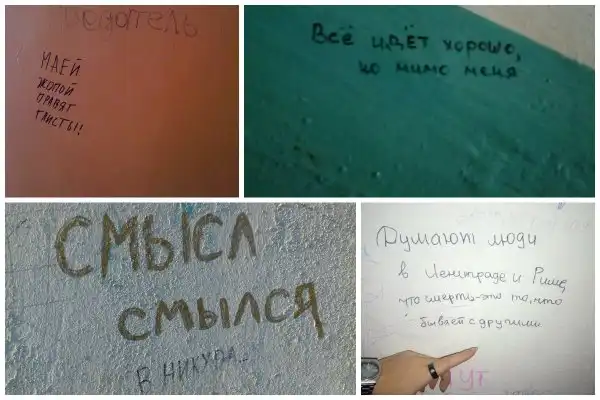 МАЕЙ
ЖОПОЙ
ПРАВЯТ
ГЛИСТЫ!
Всё идёт хорошо,
но мимо меня
СМЫСЛ
СМЫЛСЯ
В НИКУДА...
Думают люди
в Ленинграде и Риме,
что смерть-это то, что
бывает с другими
УТ